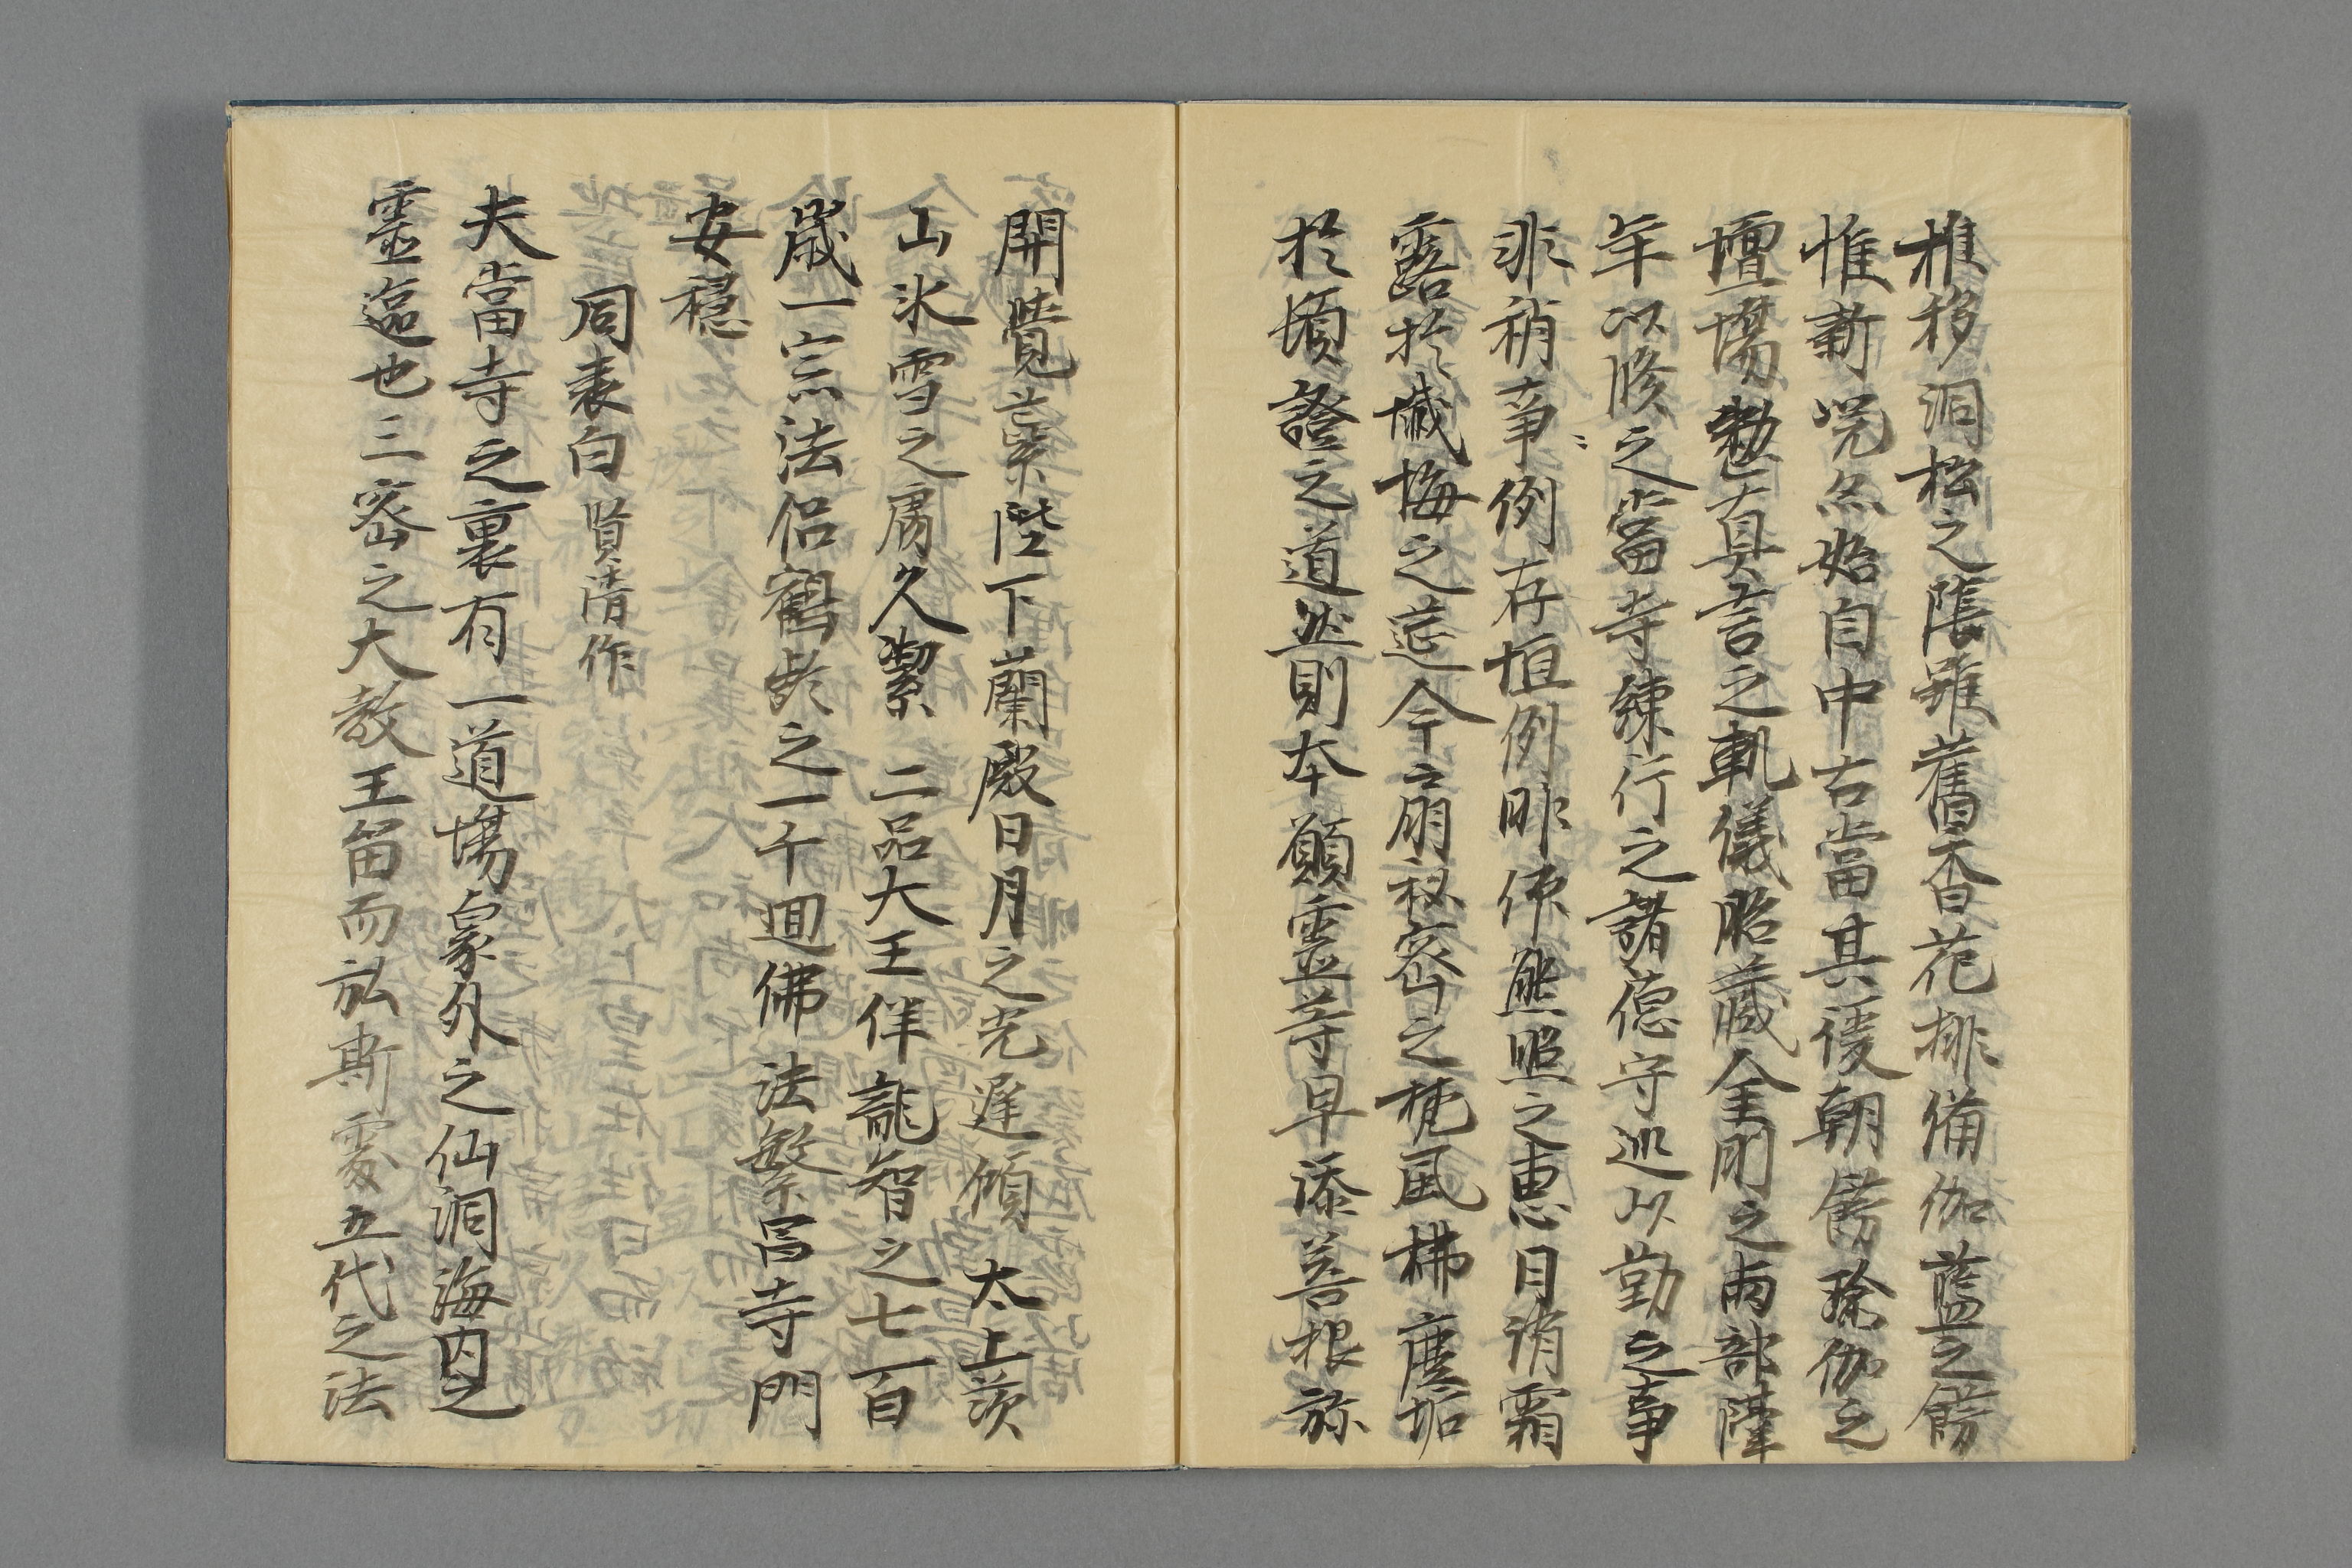 推移洞松之蔭雖舊香花排備伽藍之餝
惟新况亦始自中古當其後朝餝瑜伽之
壇場勤真言之軌儀胎蔵金剛之両部隔
年以修之當寺練行之諸德守巡以勤之事
非稍事〻例存恒例昨降熊照之恵日消霜
露於懺悔之莚今扇秘密之梵風拂塵垢
於頓證之道然則本願霊等早添善根弥
開覚蕋陛下蘭殿日月之光遅傾太上茨
山氷雪之膚久潔二品大王伴龍智之七百
歳一宗法侶鶴齢之一千廻佛法繁昌寺門
安穏
同表白賢清作
夫當寺之裏有一道場象外之仙洞海内之
霊迹也三密之大教王留而弘斯處五代之法